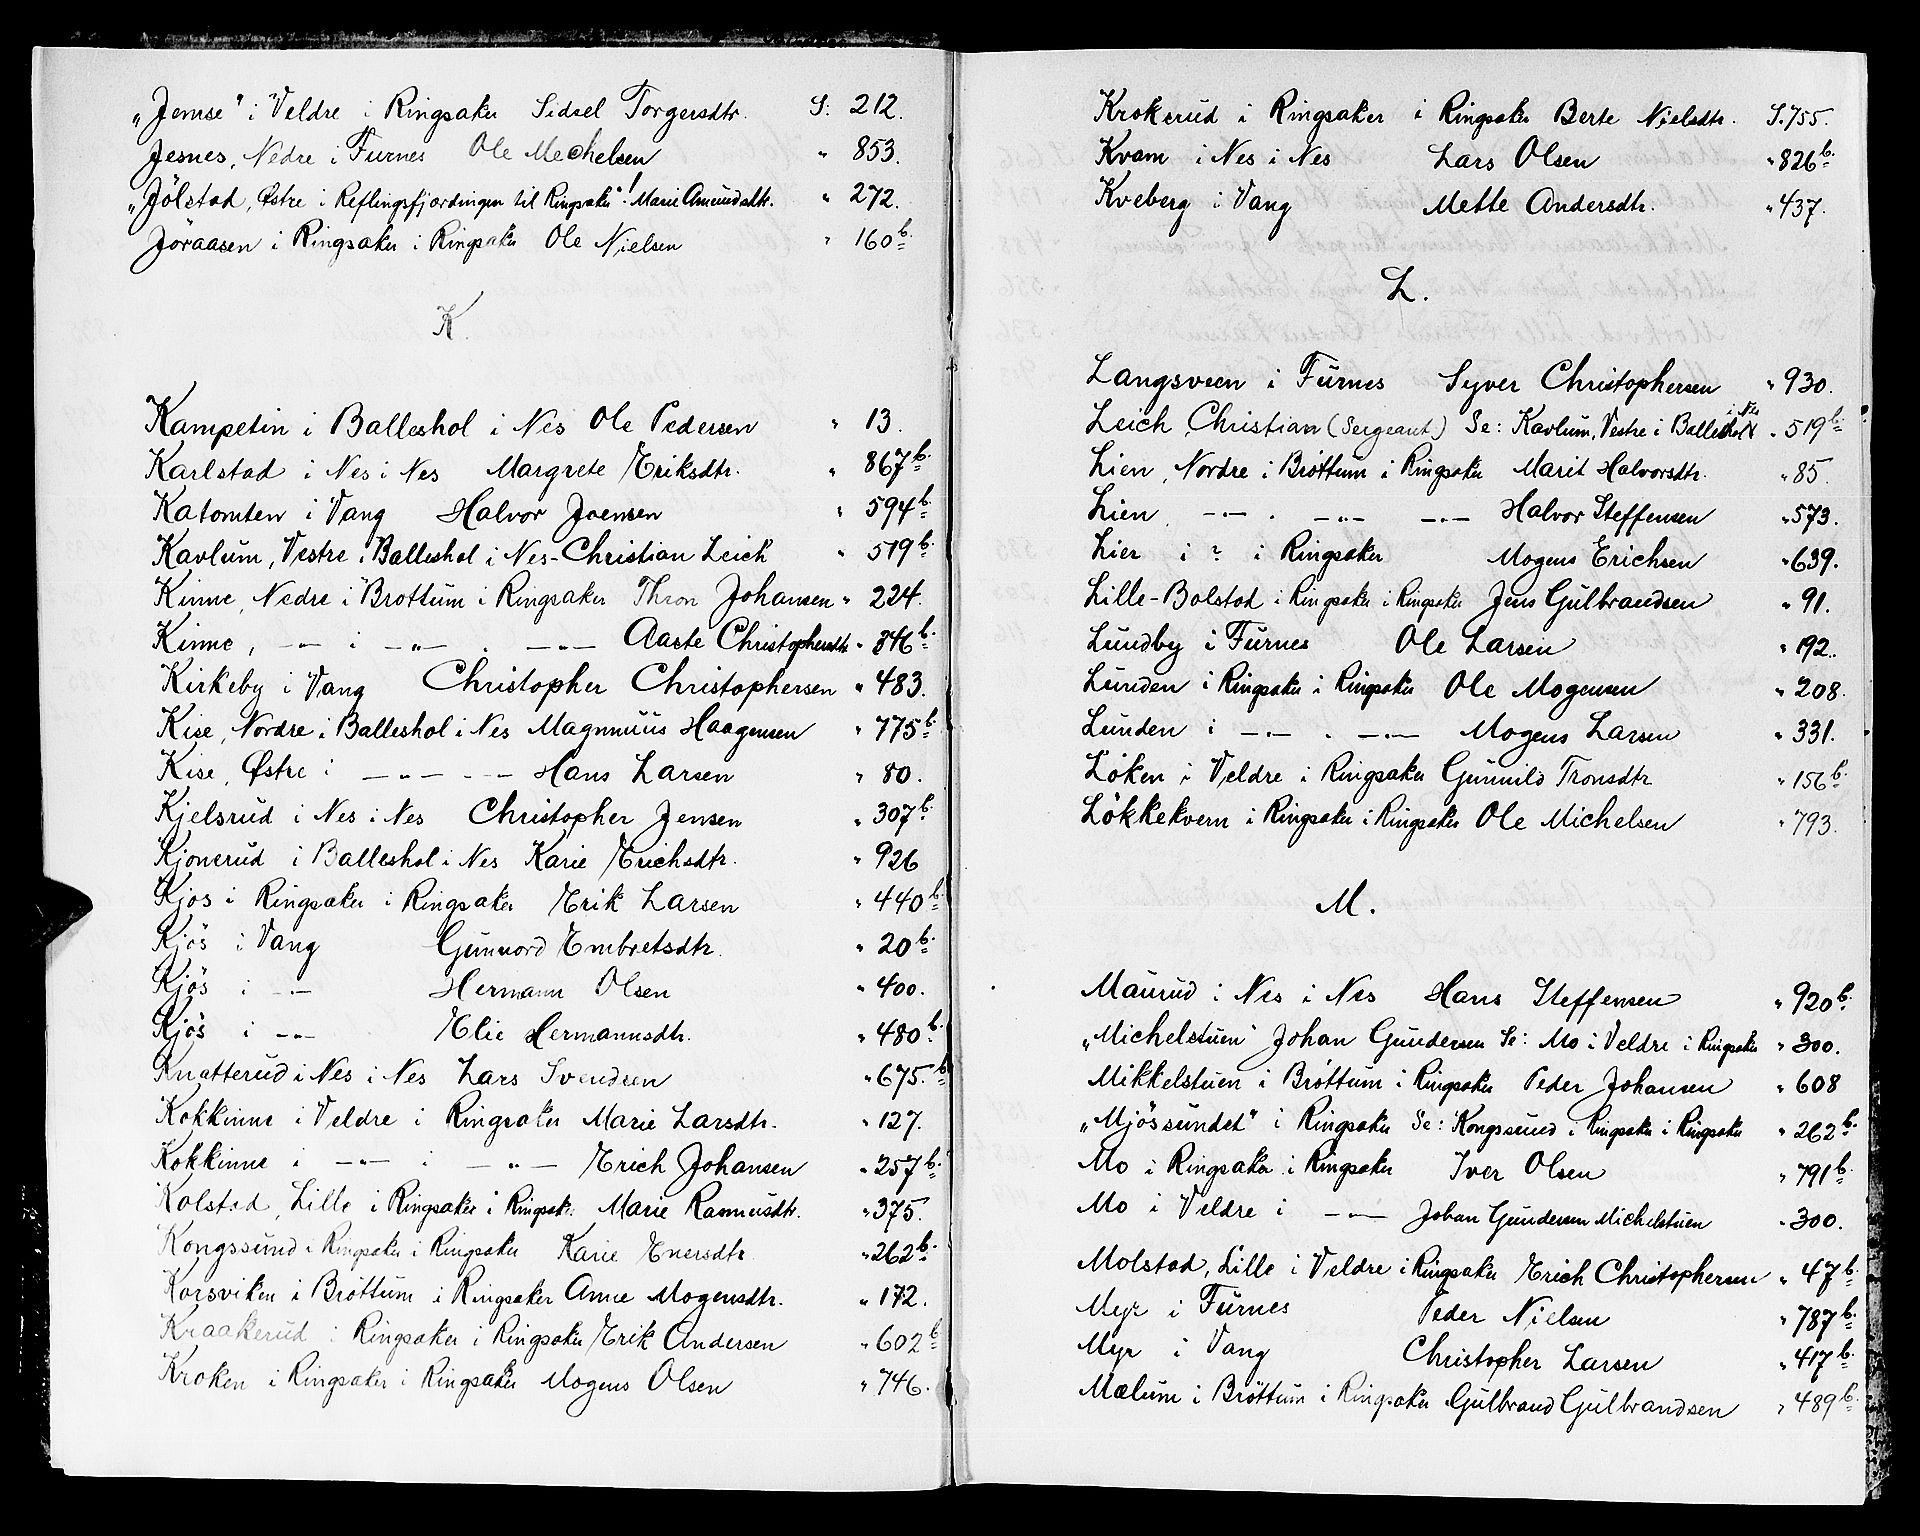 „Jemse" i Veldre i Ringsaker Sidsel Torgersdtr. S. 212.
Jesnes, Nedre i Furnes Ole Mechelsen " 853.
„Jölstad, Østre i Reflingsfjordingen til Ringsaker"! Marie Amundsdtr. " 272.
Jöraasen i Ringsaker i Ringsaker Ole Nielsen " 160b.
K.
Kampetin i Balleshol i Nes Ole Pedersen " 13.
Karlstad i Nes i Nes Margrete Eriksdtr. " 867b.
Katomten i Vang Halvor Joensen " 594b.
Kavlum, Vestre i Balleshol i Nes - Christian Leich " 519b.
Kinne, Nedre i Brottum i Ringsaker Thron Johansen " 224.
Kinne, —"— i —"— . —"— Aaste Christophersdtr. " 346b.
Kirkeby i Vang Christopher Christophersen " 483.
Kise, Nordre i Balleshol i Nes Magnnuus Haagensen " 775b.
Kise, Østre i —"— - — Hans Larsen " 80.
Kjelsrud i Nes i Nes Christopher Jensen " 307b.
Kjonerud i Balleshol i Nes Karie Erichsdtr. " 926
Kjos i Ringsaker i Ringsaker Erik Larsen " 440b.
Kjös i Vang Gunnord Embretsdtr. " 20b.
Kjös i —"— Hermann Olsen " 400.
Kjös i —"— Elie Hermannsdtr. " 480b.
Knatterud i Nes i Nes Lars Svendsen " 675.b
Kokkinne i Veldre i Ringsaker Marie Larsdtr. " 127.
Kokkinne i —"— i —"— Erich Johansen " 257b.
Kolstad, Lille i Ringsaker i Ringsak. Marie Rasmusdtr. " 375.
Kongssund i Ringsaker i Ringsaker Karie Enersdtr. " 262b.
Korsviken i Bröttum i Ringsaker Anne Mogensdtr. " 172.
Kraakerud i Ringsaker i Ringsaker Erik Andersen " 602b
Kroken i Ringsaker i Ringsaker Mogens Olsen " 746.
Krokerud i Ringsaker i Ringsaker Berte Nielsdtr. S. 755.
Kvam i Nes i Nes Lars Olsen " 826b.
Kveberg i Vang Mette Andersdtr. " 437.
L.
Langsveen i Furnes Syver Christophersen " 930.
Leich, Christian (Sergeant) Se: Kavlum, Vestre i Balleshol i Nes " 519b.
Lien, Nordre i Bröttum i Ringsaker Marit Halvorsdtr. " 85.
Lien, —"— . —"— —"— Halvor Steffensen " 573.
Lier i ? i Ringsaker Mogens Erichsen " 639.
Lille-Bolstad i Ringsaker i Ringsaker Jens Gulbrandsen " 91.
Lundby i Furnes Ole Larsen " 192.
Lunden i Ringsaker i Ringsaker Ole Mogensen " 208.
Lunden i —"— . —"— Mogens Larsen " 331.
Löken i Veldre i Ringsaker Gunnild Tronsdtr " 156b.
Lökkekvern i Ringsaker i Ringsaker Ole Michelsen " 793.
M.
Maurud i Nes i Nes Hans Steffensen " 920b.
„Michelstuen" Johan Gundersen Se: Mo i Veldre i Ringsaker " 300.
Mikkelstuen i Bröttum i Ringsaker Peder Johansen " 608
„Mjössundet" i Ringsaker Se: Kongssund i Ringsaker i Ringsaker " 262b.
Mo i Ringsaker i Ringsaker Iver Olsen " 791b.
Mo i Veldre i —"— Johan Gundersen Michelstuen " 300.
Molstad, Lille i Veldre i Ringsaker Erich Christophersen " 47b.
Myr i Furnes Peder Nielsen " 787b.
Myr i Vang Christopher Larsen " 417b.
Mælum i Bröttum i Ringsaker Gulbrand Gulbrandsen " 489b.